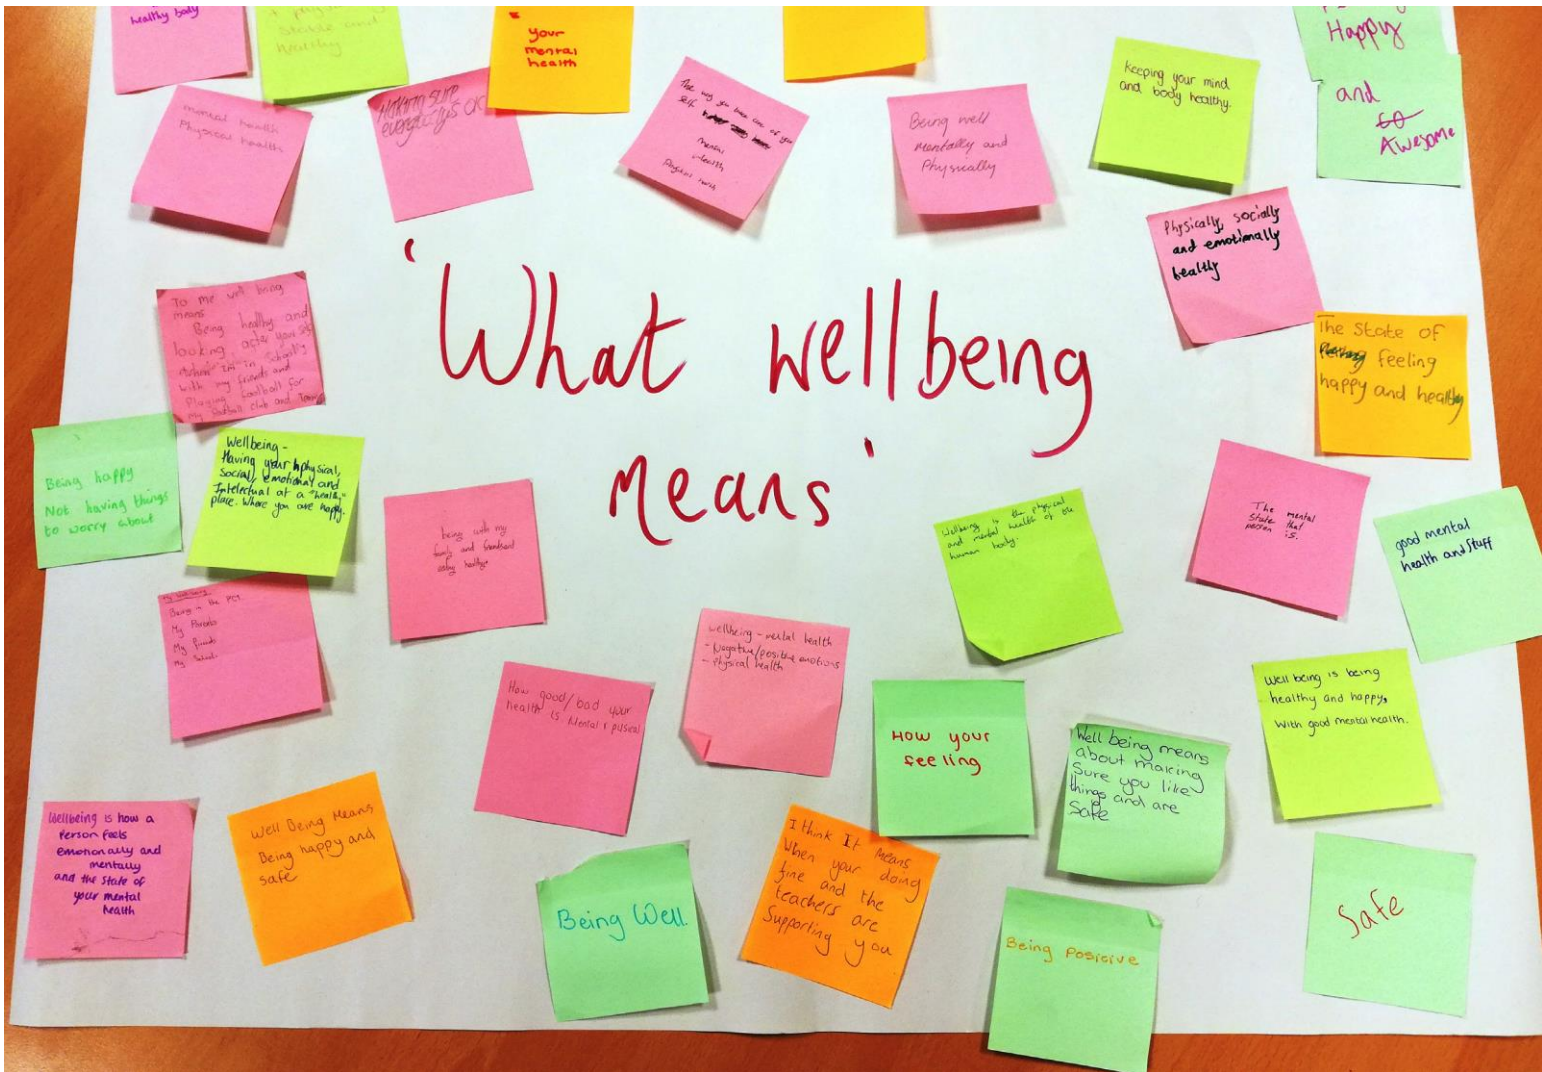 healthy body
stable and
healthy
your
mental
health
Happy
and
Awesome
mental health
Physical health
Making sure
everything's OK
The way you take care of your
self
mental
Health
Physical health
Being well
mentally and
Physically
keeping your mind
and body healthy.
Physically, socially
and emotionally
healthy
'What wellbeing
means'
To me well bring
means
Being healthy and
looking after your self
when Im in school
with my friends and
Playing football for
My football club and
The State of
feeling
happy and healthy
Being happy
Not having things
to worry about
Wellbeing -
Having your physical,
social, emotional and
Intelectual at a "healthy"
place. Where you are happy.
being with my
family and friends and
being healthy.
Wellbeing is the physical
and mental health of the
human body.
The mental
State that
person is.
good mental
health and stuff
My wellbeing
Being in the
My Parents
My friends
My School
How good/bad your
health is Mental + pysical
wellbeing - mental health
- Negative/positive emotions
- Physical health
How your
feeling
Well being means
about making
Sure you like
things and are
Safe
Well being is being
healthy and happy,
With good mental health.
Wellbeing is how a
Person feels
emotionally and
mentally
and the state of
your mental
health
Well Being Means
Being happy and
safe
Being Well
I think It means
When your doing
fine and the
teachers are
Supporting you
Being Posicive
Safe